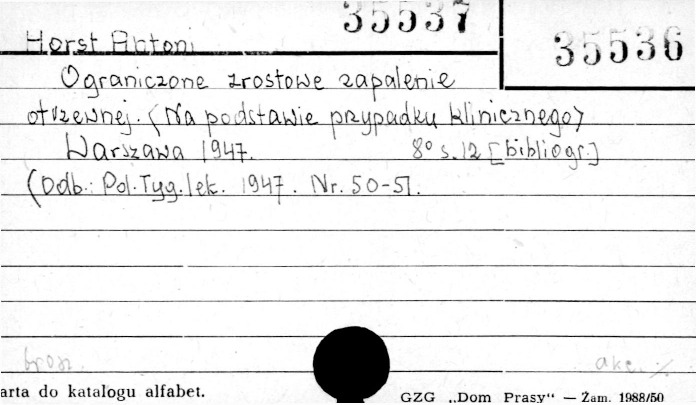 35537
Horst Antoni
35536
Ograniczone zrostowe zapalenie
otrzewnej. (Na podstawie przypadku klinicznego)
Warszawa 1947. 8° s. 12 [bibliogr.]
(Odb.: Pol. Tyg. lek. 1947. Nr. 50-51.
brosz. akc. %
arta do katalogu alfabet.
GZG „Dom Prasy“ — Zam. 1988/50